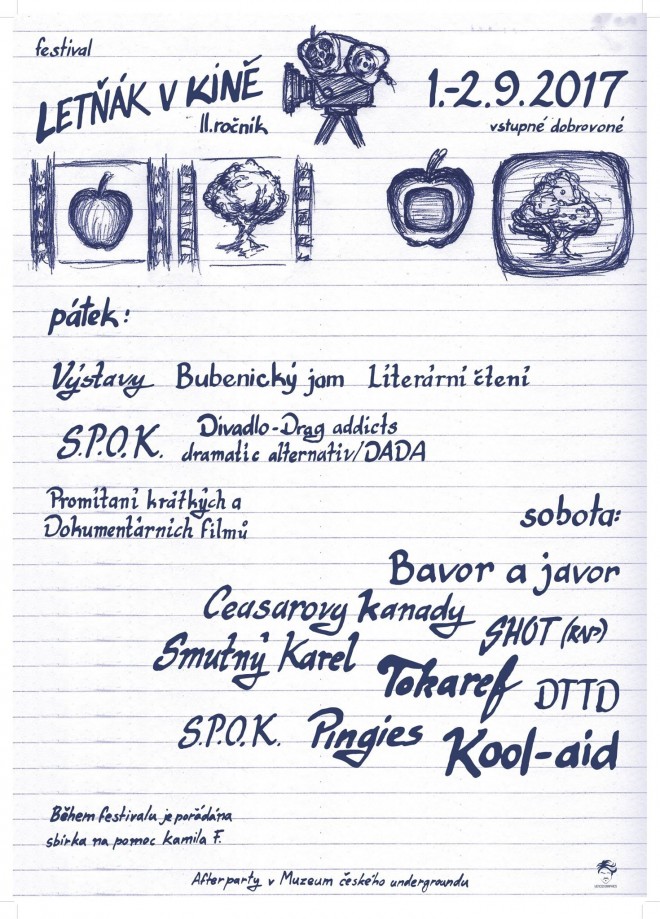 festival
LETŇÁK V KÍNĚ
II.ročník
1.-2.9.2017
vstupné dobrovoné
pátek:
Výstavy Bubenický jam Literární čtení
S.P.O.K. Divadlo-Drag addicts
dramatic alternativ/DADA
Promítaní krátkých a
Dokumentárních filmů
sobota:
Bavor a javor
Ceasarovy kanady
SHOT (RAP)
Smutný Karel
Tokaref DTTD
S.P.O.K. Pingies Kool-aid
Během festivalu je pořádána
sbírka na pomoc Kamila F.
Afterparty v Muzeum českého undergroundu